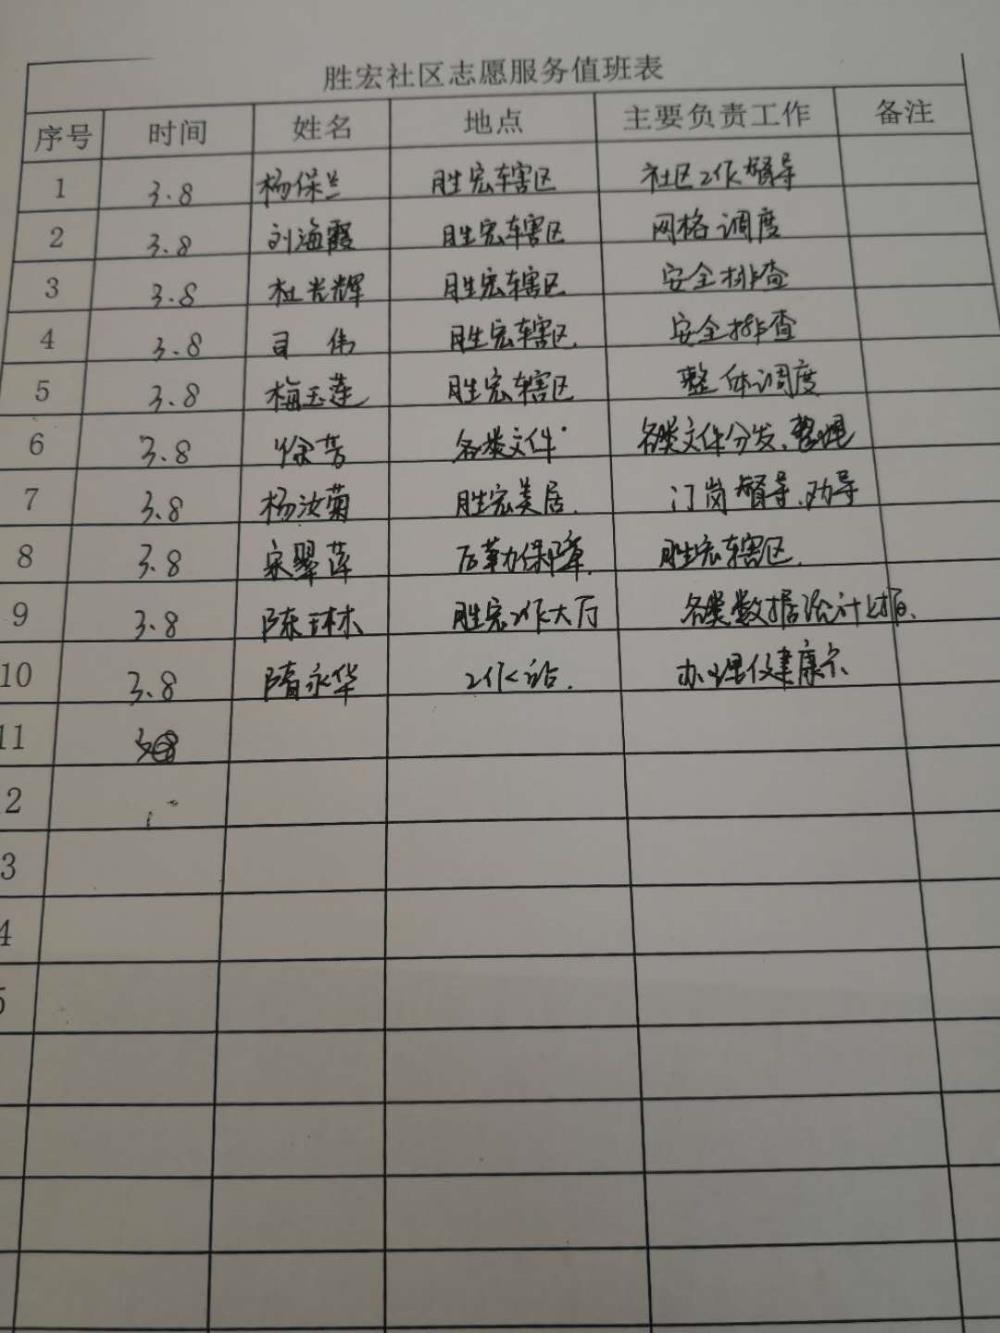 胜宏社区志愿服务值班表
序号 时间 姓名 地点 主要负责工作 备注
1 3.8 杨保兰 胜宏辖区 社区工作督导
2 3.8 刘海霞 胜宏辖区 网格调度
3 3.8 杜光辉 胜宏辖区 安全排查
4 3.8 司伟 胜宏辖区. 安全排查
5 3.8 梅玉莲 胜宏辖区 整体调度
6 3.8 徐芳 各类文件 各类文件分发、整理
7 3.8 杨汝菊 胜宏美居 门岗督导、劝导
8 3.8 宋翠莲 后勤保障. 胜宏辖区.
9 3.8 陈琳 胜宏工作大厅 各类数据统计上报.
10 3.8 隋永华 工作站. 办理健康
11
2
3
4
5